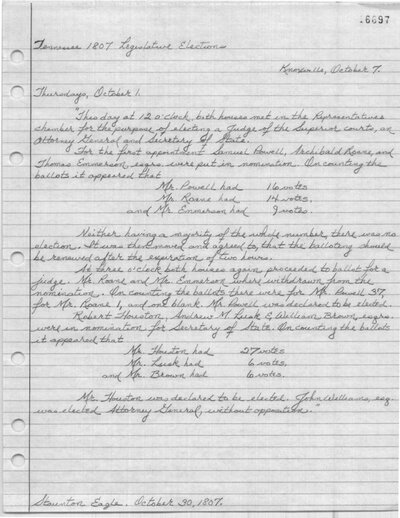 .6697
Tennessee 1807 Legislative Elections
Knoxville, October 7.
Thursday, October 1.
"This day at 12 o'clock, both houses met in the Representatives
chamber for the purpose of electing a Judge of the Superior courts, an
Attorney General and Secretary of State.
For the first appointment Samuel Powell, Archibald Roane, and
Thomas Emmerson, esqrs. were put in nomination. On counting the
ballots it appeared that
Mr. Powell had 16 votes
Mr. Roane had 14 votes,
and Mr. Emmerson had 9 votes.
Neither having a majority of the whole number there was no
election. It was then moved and agreed to, that the balloting should
be renewed after the expiration of two hours.
At three o'clock both houses again proceeded to ballot for a
judge. Mr. Roane and Mr. Emmerson where withdrawn from the
nomination. On counting the ballots there were for Mr. Powell 37,
for Mr. Roane 1, and one blank. Mr. Powell was declared to be elected.
Robert Houston, Andrew M. Lusk & William Brown, esqrs.
were in nomination for Secretary of State. On counting the ballots
it appeared that
Mr. Houston had 27 votes
Mr. Lusk had 6 votes,
and Mr. Brown had 6 votes.
Mr. Houston was declared to be elected. John Williams, esq.
was elected Attorney General, without opposition."
Staunton Eagle. October 30, 1807.